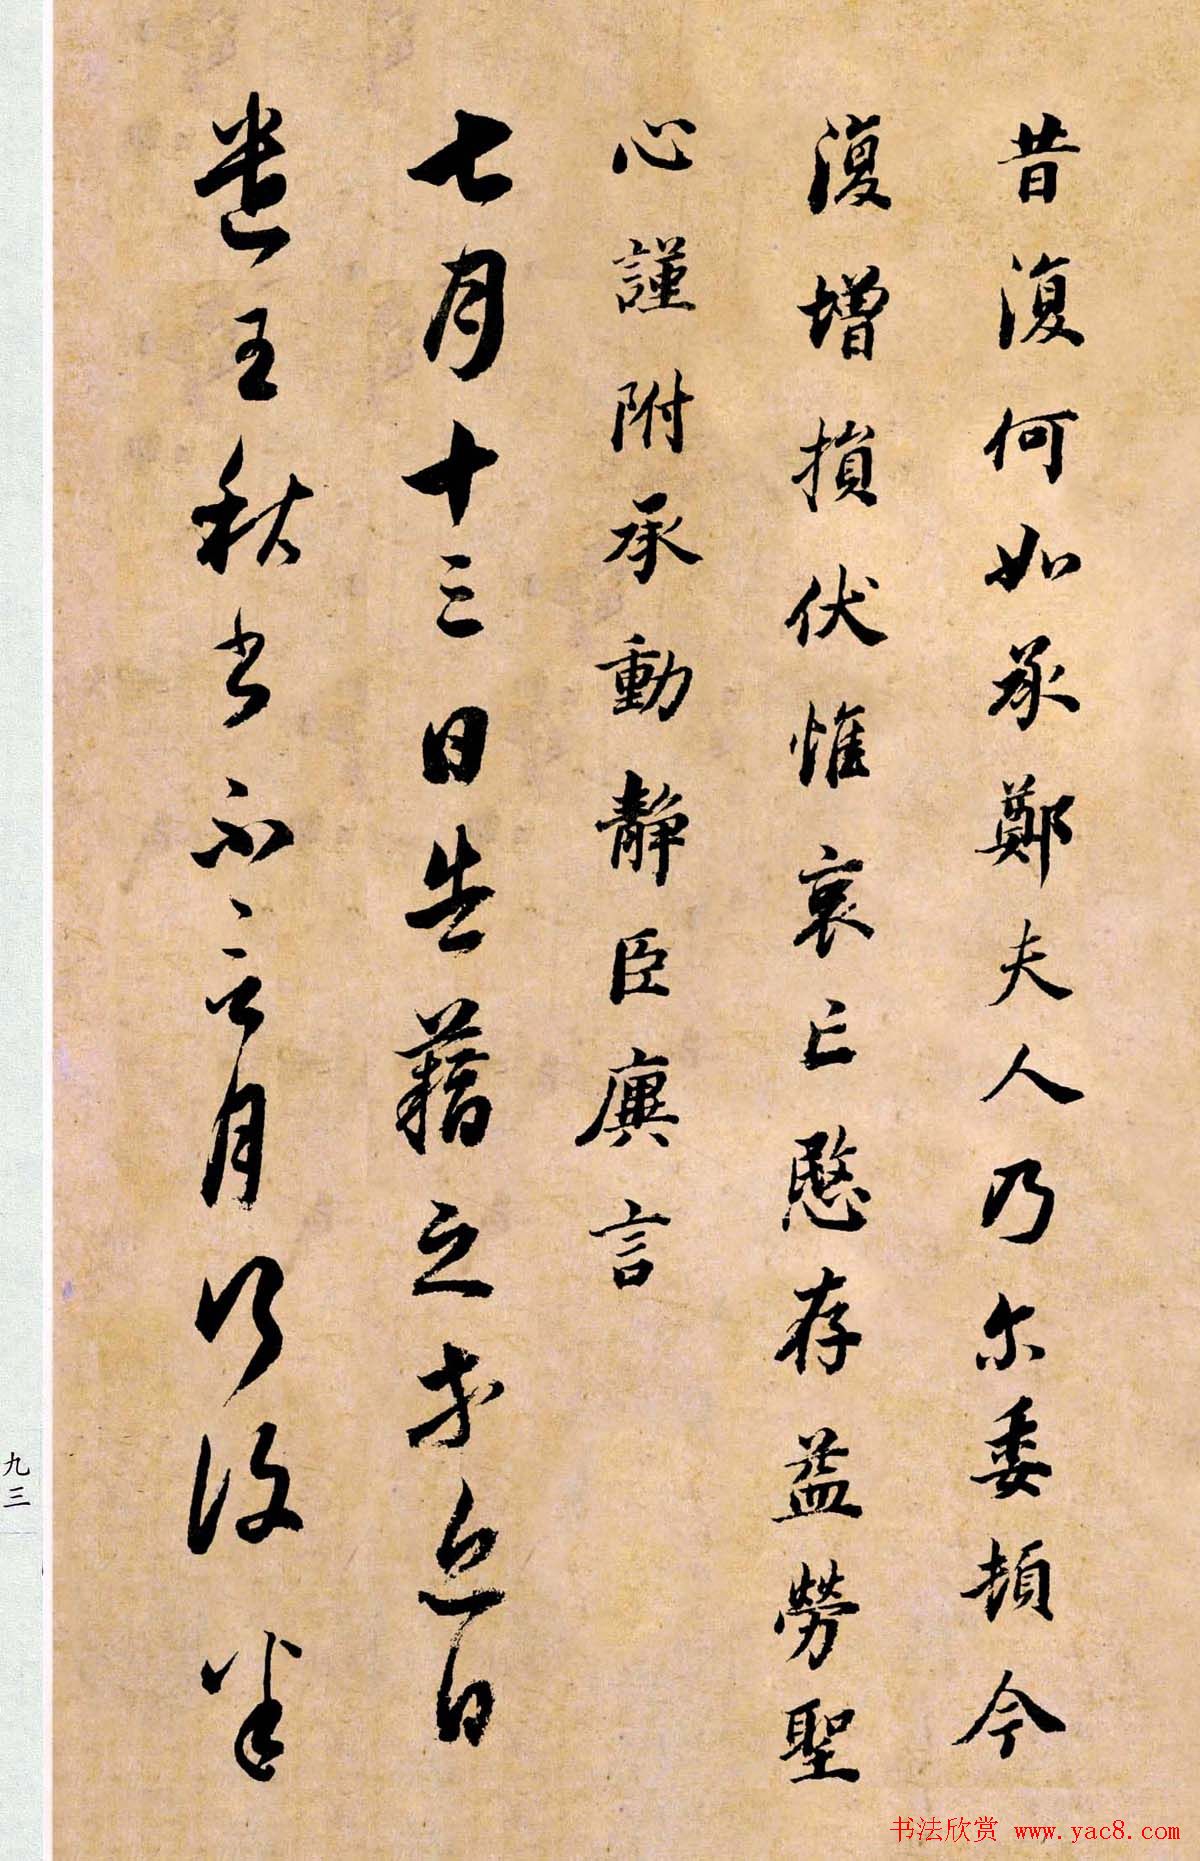 昔復何如承鄭夫人乃尔委頓今
復增損伏惟哀亡愍存益勞聖
心謹附承動靜臣廙言
七月十三日告藉之等近日
遣王秋書不言月行復半
九三
书法欣赏 www.yac8.com